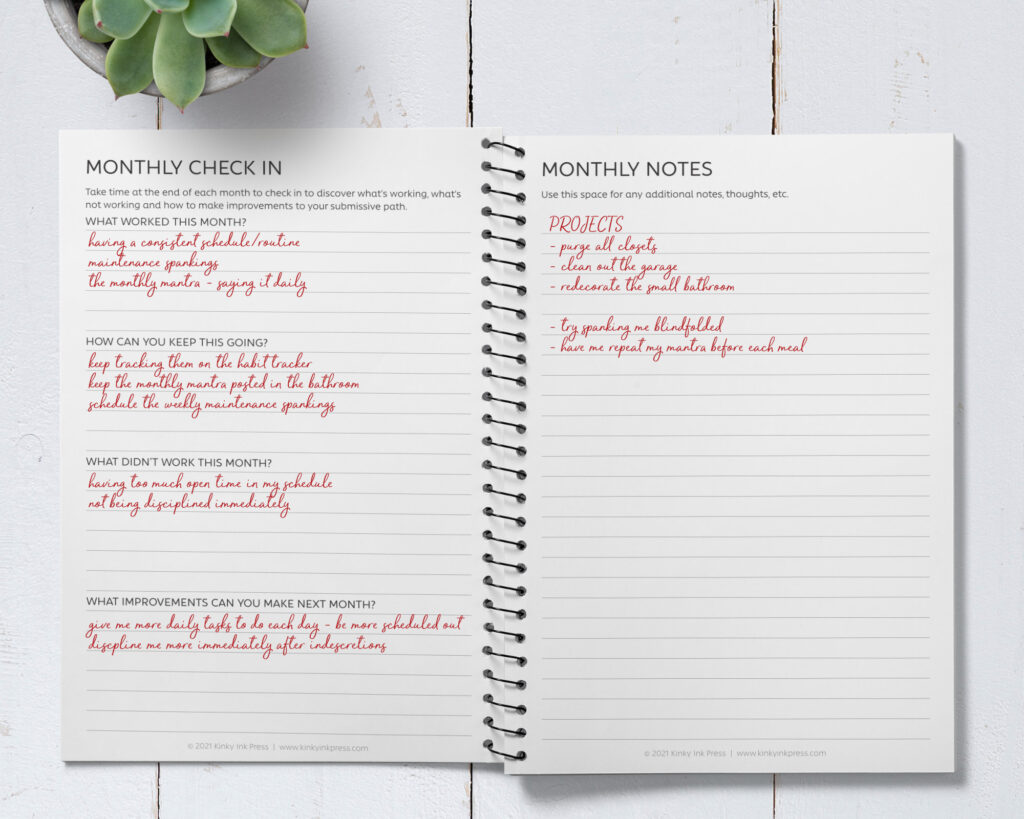 MONTHLY CHECK IN
Take time at the end of each month to check in to discover what's working, what's
not working and how to make improvements to your submissive path.
WHAT WORKED THIS MONTH?
having a consistent schedule/routine
maintenance spankings
the monthly mantra - saying it daily
HOW CAN YOU KEEP THIS GOING?
keep tracking them on the habit tracker
keep the monthly mantra posted in the bathroom
schedule the weekly maintenance spankings
WHAT DIDN'T WORK THIS MONTH?
having too much open time in my schedule
not being disciplined immediately
WHAT IMPROVEMENTS CAN YOU MAKE NEXT MONTH?
give me more daily tasks to do each day - be more scheduled out
discpline me more immediately after indescretions
© 2021 Kinky Ink Press | www.kinkyinkpress.com
MONTHLY NOTES
Use this space for any additional notes, thoughts, etc.
PROJECTS
- purge all closets
- clean out the garage
- redecorate the small bathroom
- try spanking me blindfolded
- have me repeat my mantra before each meal
© 2021 Kinky Ink Press | www.kinkyinkpress.com